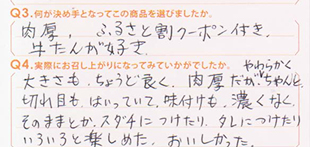 Q3.何が決め手となってこの商品を選びましたか。
肉厚，ふるさと割クーポン付き，
牛たんが好き
Q4.実際にお召し上がりになってみていかがでしたか。
やわらかく
大きさも、ちょうど良く、肉厚だが、ちゃんと、
切れ目も、はいっていて、味付けも、濃くなく、
そのままとか、スダチにつけたり、タレにつけたり
いろいろと楽しめた。おいしかった。